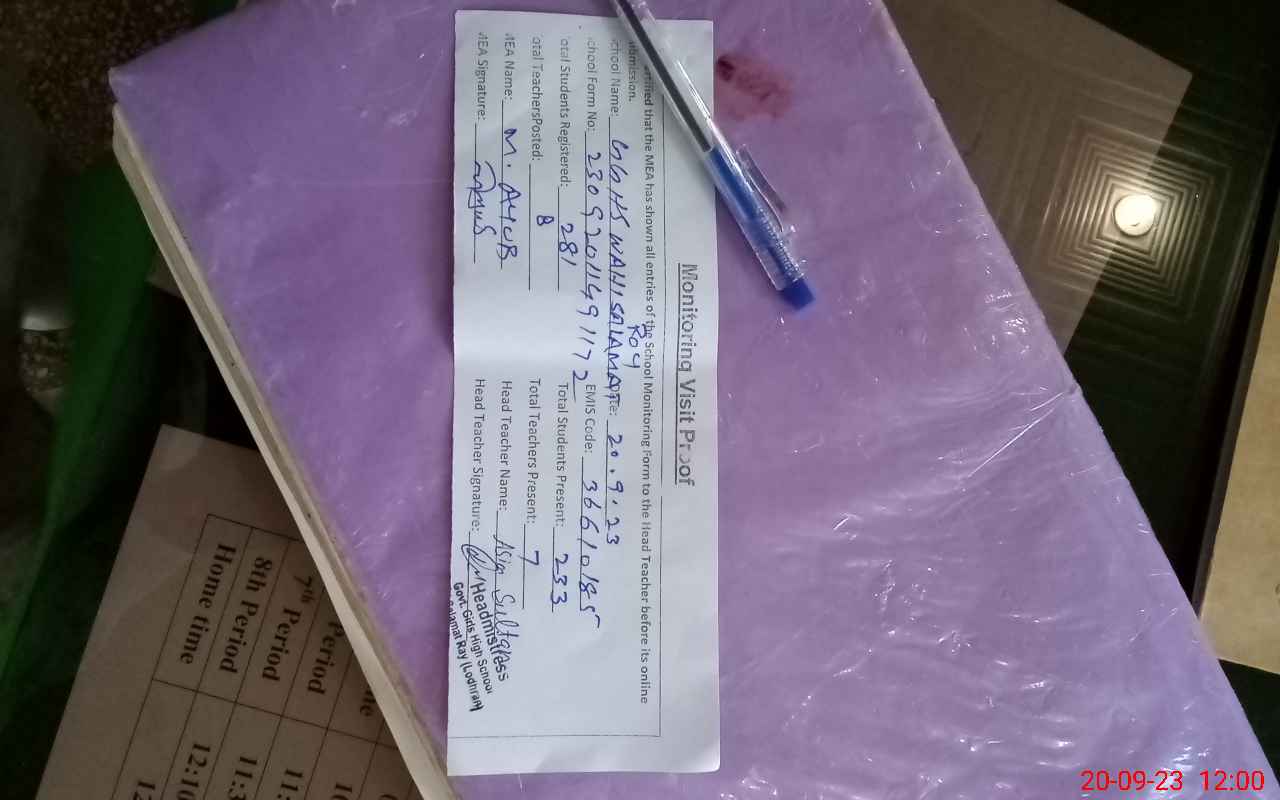 Monitoring Visit Proof
rtified that the MEA has shown all entries of the School Monitoring Form to the Head Teacher before its online
bmission.
chool Name: GGHS WAHI SALAMAT ROY Date: 20.9.23
chool Form No: 23092011491172 EMIS Code: 36610185
otal Students Registered: 281 Total Students Present: 233
otal TeachersPosted: 8 Total Teachers Present: 7
MEA Name: M. AYUB Head Teacher Name: Asia Sultana
MEA Signature: Head Teacher Signature:
Headmistress
Govt. Girls High School
Salamat Ray (Lodhran)
Period
7th Period 11:
8th Period 11:3
Home time 12:10
20-09-23 12:00